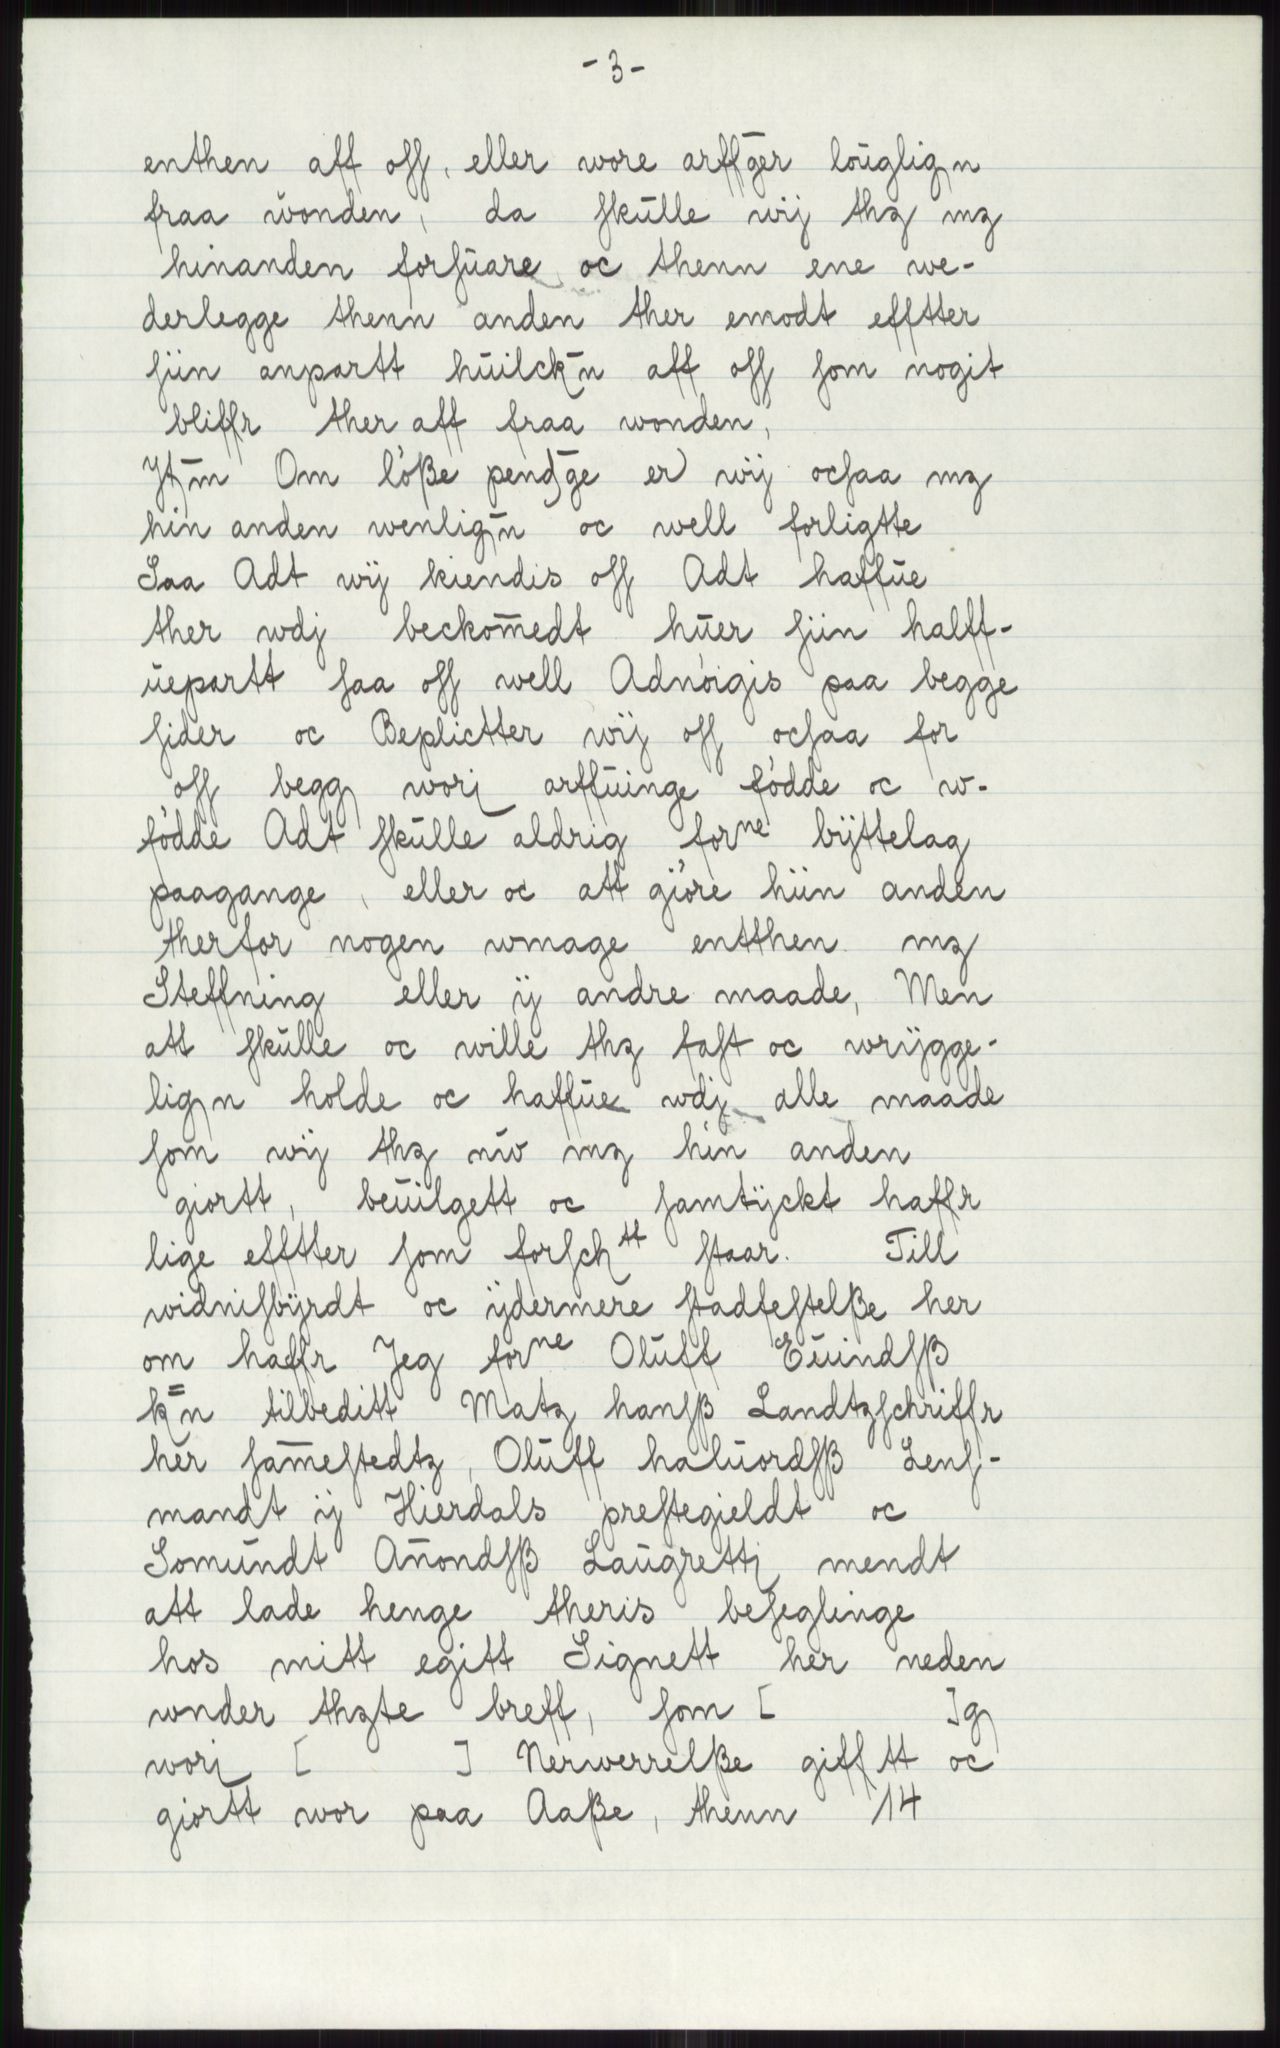 - 3 -
enthen aff oſſ, eller wore arffg̅er loŭglign
fraa wŏnden, da ſkŭlle wij thz mz
hinanden forſŭare oc thenn ene we-
derlegge thenn anden ther emodt efftter
ſiin anpartt hŭilck̅n aff oſſ ſom nogit
bliffr ther aff fraa wonden,
Jt̅m Om löße pend̅ge er wij ocſaa mz
hin anden wenlig̅n oc well forligtte
Saa Adt wij kiendis oſſ Adt haffŭe
ther wdj beckom̅edt hŭer ſiin halff-
ŭepartt ſaa oſſ well Adnöigis paa begge
ſider oc Beplictter wij oſſ ocſaa for
oſſ begg worj arffŭinge födde oc w-
födde Adt ſkŭlle aldrig forne bÿttelag
paagange, eller oc att giöre hiin anden
therfor nogen wmage entthen mz
Steffning eller ij andre maade, Men
att ſkŭlle oc wille thz faſt oc wrÿgge-
lign holde oc haffŭe wdj alle maade
ſom wij thz nŭ mz hin anden
giortt, beŭilgett oc ſamtÿckt haffr
lige efftter ſom forſchtt ſtaar. Till
widniſbÿrdt oc ÿdermere ſtadfeſtelße her
om haffr Jeg forne Olŭff Eŭindſß
k̿n tilbeditt Matz hanſß Landtzſchriffr
her ſam̅eſtedtz, Olŭff halŭordſß Lenſ-
mandt ij Hierdals preſtegieldt oc
Somŭndt Ańondſß Laŭgrettj mendt
att lade henge theris beſeglinge
hos mitt egitt Signett her neden
wnder thzte breff, ſom [ ]g
worj [ ] Nerwerrelße gifftt oc
giortt wor paa Aaße, thenn 14